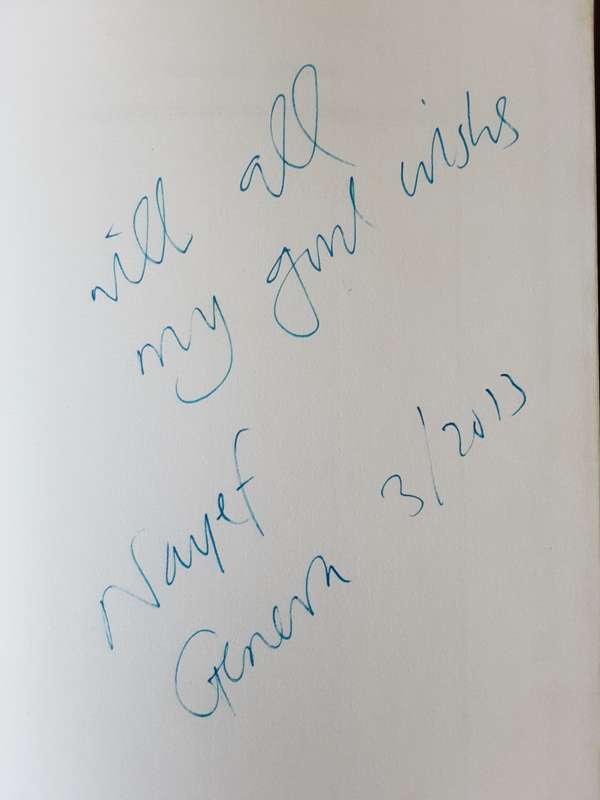 with all
my good wishes
Nayef
Geneva 3/2013